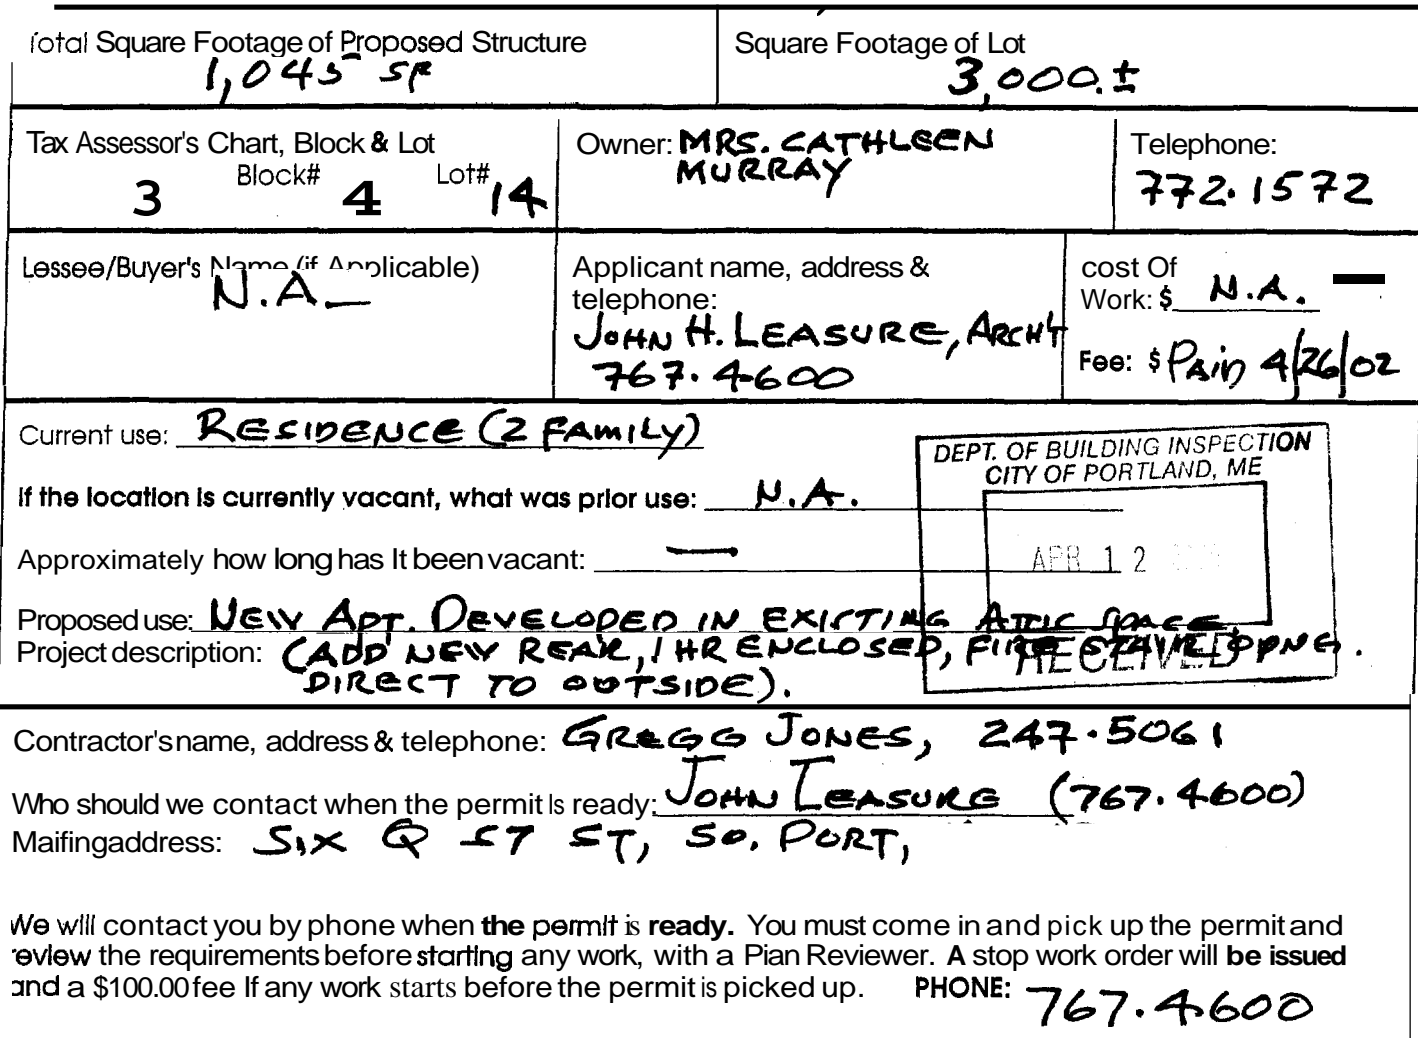 Total Square Footage of Proposed Structure
1,045 SF
Square Footage of Lot
3,000.±
Tax Assessor's Chart, Block & Lot
Block# Lot#
3 4 14
Owner: MRS. CATHLEEN
MURRAY
Telephone:
772.1572
Lessee/Buyer's Name (if Applicable)
N.A.
Applicant name, address &
telephone:
JOHN H. LEASURE, ARCH'T
767.4600
cost Of
Work: $ N.A.
Fee: $ PAID 4/26/02
Current use: RESIDENCE (2 FAMILY)
If the location is currently vacant, what was prior use: N.A.
Approximately how long has It been vacant: —
DEPT. OF BUILDING INSPECTION
CITY OF PORTLAND, ME
APR 12
RECEIVED
Proposed use: NEW APT. DEVELOPED IN EXISTING ATTIC SPACE
Project description: (ADD NEW REAR, 1 HR ENCLOSED, FIRE STAIR OPNG.
DIRECT TO OUTSIDE).
Contractor's name, address & telephone: GREGG JONES, 247.5061
Who should we contact when the permit Is ready: JOHN LEASURE (767.4600)
Maifing address: SIX Q ST ST, SO. PORT,
We will contact you by phone when the permit is ready. You must come in and pick up the permit and
review the requirements before starting any work, with a Pian Reviewer. A stop work order will be issued
and a $100.00 fee If any work starts before the permit is picked up. PHONE: 767.4600